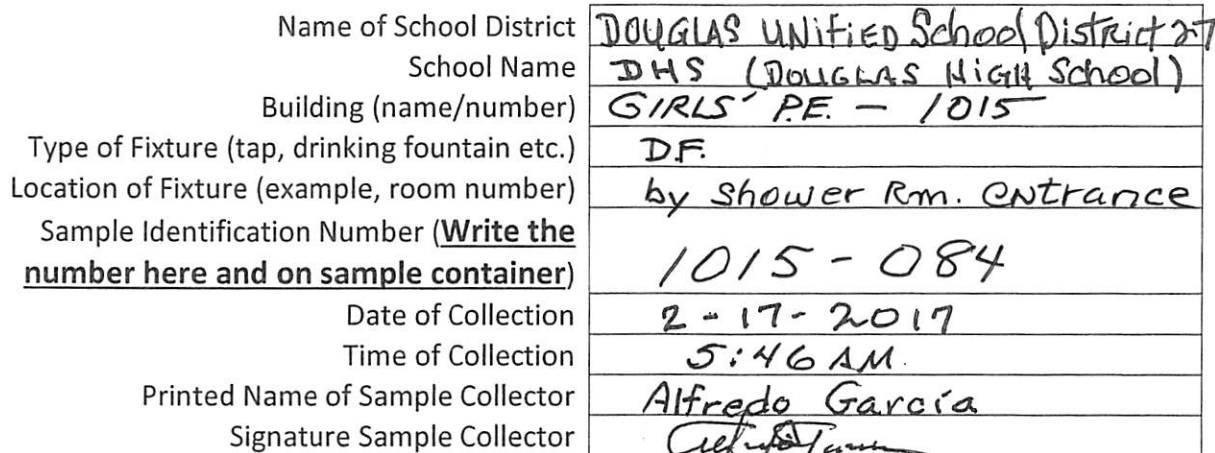 Name of School District DOUGLAS UNIFIED School District 27
School Name DHS (DOUGLAS HIGH School)
Building (name/number) GIRLS' P.E. - 1015
Type of Fixture (tap, drinking fountain etc.) D.F.
Location of Fixture (example, room number) by Shower Rm. Entrance
Sample Identification Number (Write the
number here and on sample container) 1015-084
Date of Collection 2-17-2017
Time of Collection 5:46 AM.
Printed Name of Sample Collector Alfredo García
Signature Sample Collector